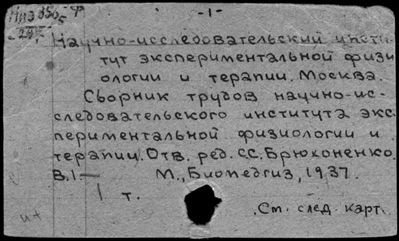 -1-
Научно-исследовательский инсти-
тут экспериментальной физи
ологии и терапии. Москва.
Сборник трудов научно-ис-
следовательского института экс-
периментальной физиологии и
терапии. Отв. ред. С.С. Брюхоненко.
В.1- М., Биомедгиз, 1937.
1 т.
См. след. карт.